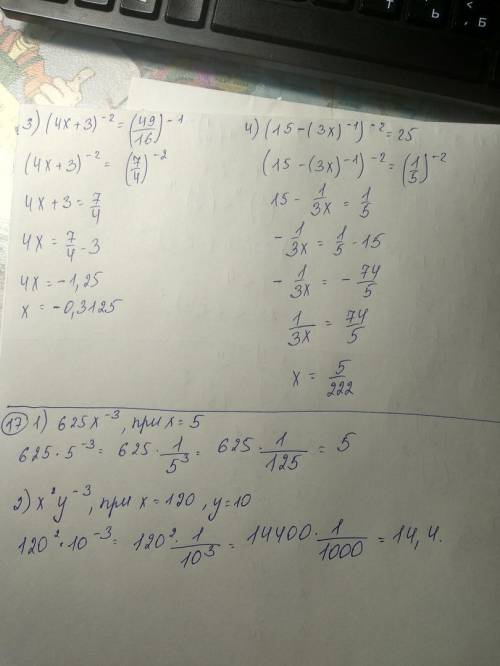 3) (4x+3)⁻² = (49/16)⁻¹
(4x+3)⁻² = (7/4)⁻²
4x+3 = 7/4
4x = 7/4 - 3
4x = -1,25
x = -0,3125
4) (15-(3x)⁻¹)⁻² = 25
(15-(3x)⁻¹)⁻² = (1/5)⁻²
15 - 1/3x = 1/5
- 1/3x = 1/5 - 15
- 1/3x = - 74/5
1/3x = 74/5
x = 5/222
17 1) 625x⁻³, при x = 5
625·5⁻³ = 625 · 1/5³ = 625 · 1/125 = 5
2) x²y⁻³, при x = 120, y = 10
120²·10⁻³ = 120² · 1/10³ = 14400 · 1/1000 = 14,4.